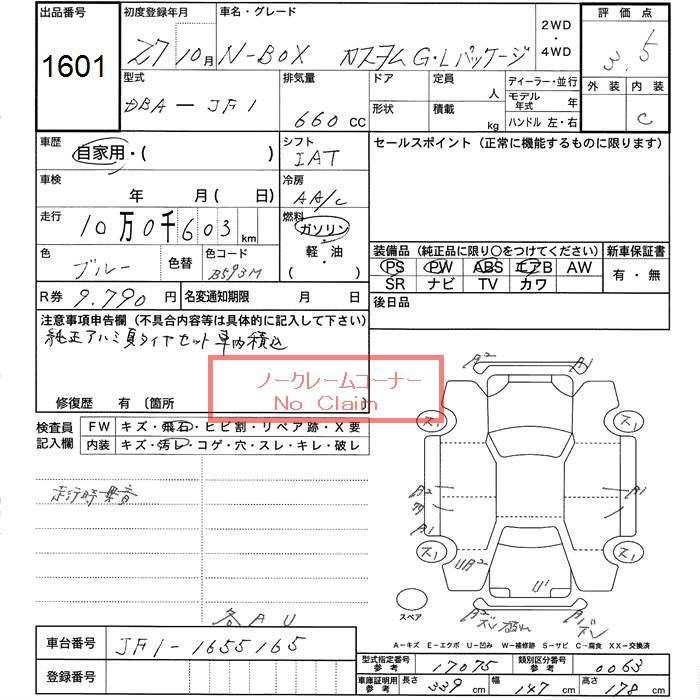 出品番号 初度登録年月 車名・グレード 2WD・4WD 評価点
1601 27 10月 N-BOX カスタム G・Lパッケージ 3.5
型式 排気量 ドア 定員 人 ディーラー・並行 外装 内装
DBA-JF1 660 cc 形状 積載 kg モデル年式 年 C
ハンドル 左・右
車歴 自家用・( ) シフト セールスポイント(正常に機能するものに限ります)
IAT
車検 年 月( 日) 冷房 AA/C
走行 10万0千603 km 燃料 ガソリン
軽・油
・( )
色 ブルー 色替 色コード B593M
装備品(純正品に限り〇をつけてください) 新車保証書
PS PW ABS エアB AW 有・無
SR ナビ TV カワ
R券 9,790円 名変通知期限 月 日 後日品
注意事項申告欄(不具合内容等は具体的に記入して下さい)
純正アルミ夏タイヤセット車内積込
ノークレームコーナー
No Claim
修復歴 有(箇所 )
検査員記入欄 FW キズ・飛石・ヒビ割・リペア跡・X要
内装 キズ・汚レ・コゲ・穴・スレ・キレ・破レ
走行時異音
各AU
A2 A1
ス1 ス1
A2 A1
A1
ス1 ス1
UA2 U1
スペア
A2 A1
A-キズ E-エクボ U-凹み W-補修跡 S-サビ C-腐食 XX-交換済
車台番号 JF1-1655165
登録番号
型式指定番号 参考 17075 類別区分番号 参考 0063
車庫証明用 参考 長さ 339 cm 幅 147 cm 高さ 178 cm